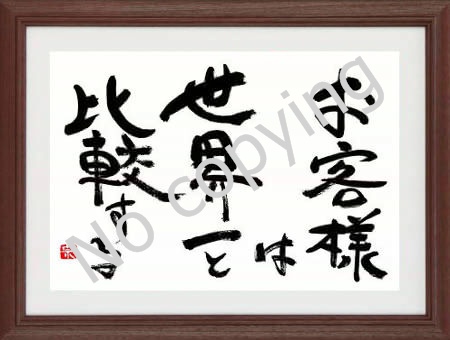 お客様は
世界一と
比較する
No copying